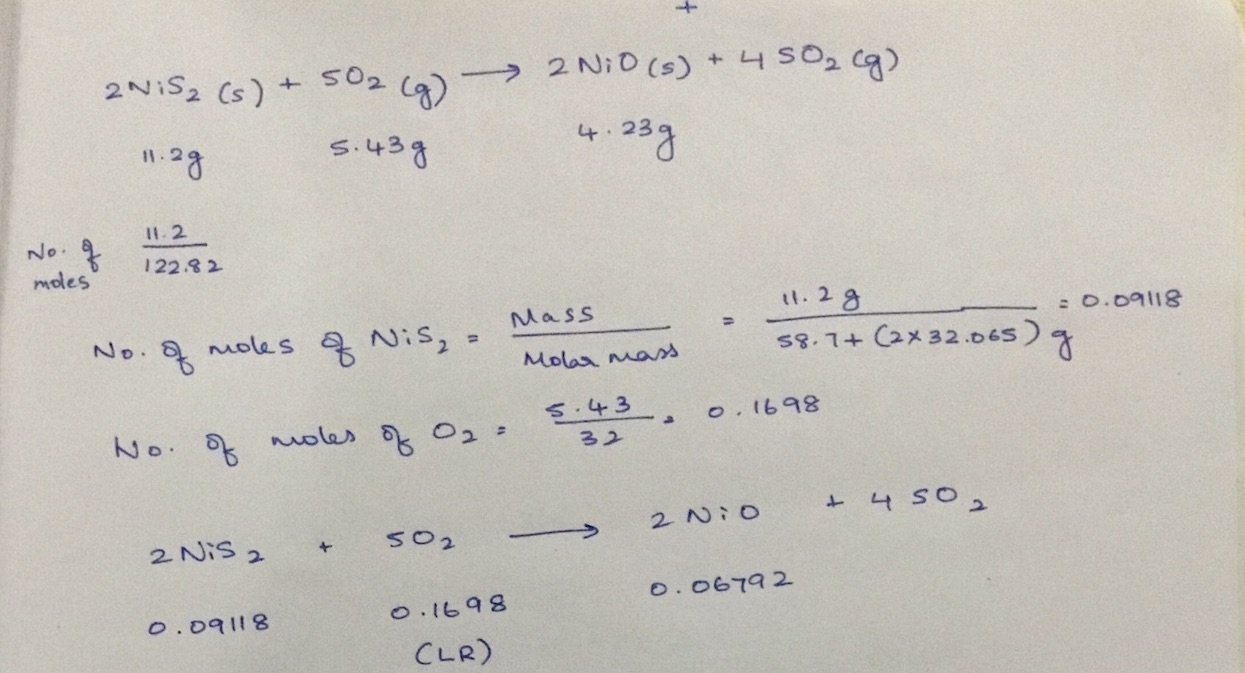 +
2NiS₂ (s) + 5O₂ (g) ⟶ 2NiO (s) + 4SO₂ (g)
11.2g 5.43g 4.23g
No. of moles 11.2/122.82
No. of moles of NiS₂ = Mass/Molar mass = 11.2g/58.7+(2×32.065)g = 0.09118
No. of moles of O₂ = 5.43/32 = 0.1698
2NiS₂ + 5O₂ ⟶ 2NiO + 4SO₂
0.09118 0.1698 0.06792
(LR)